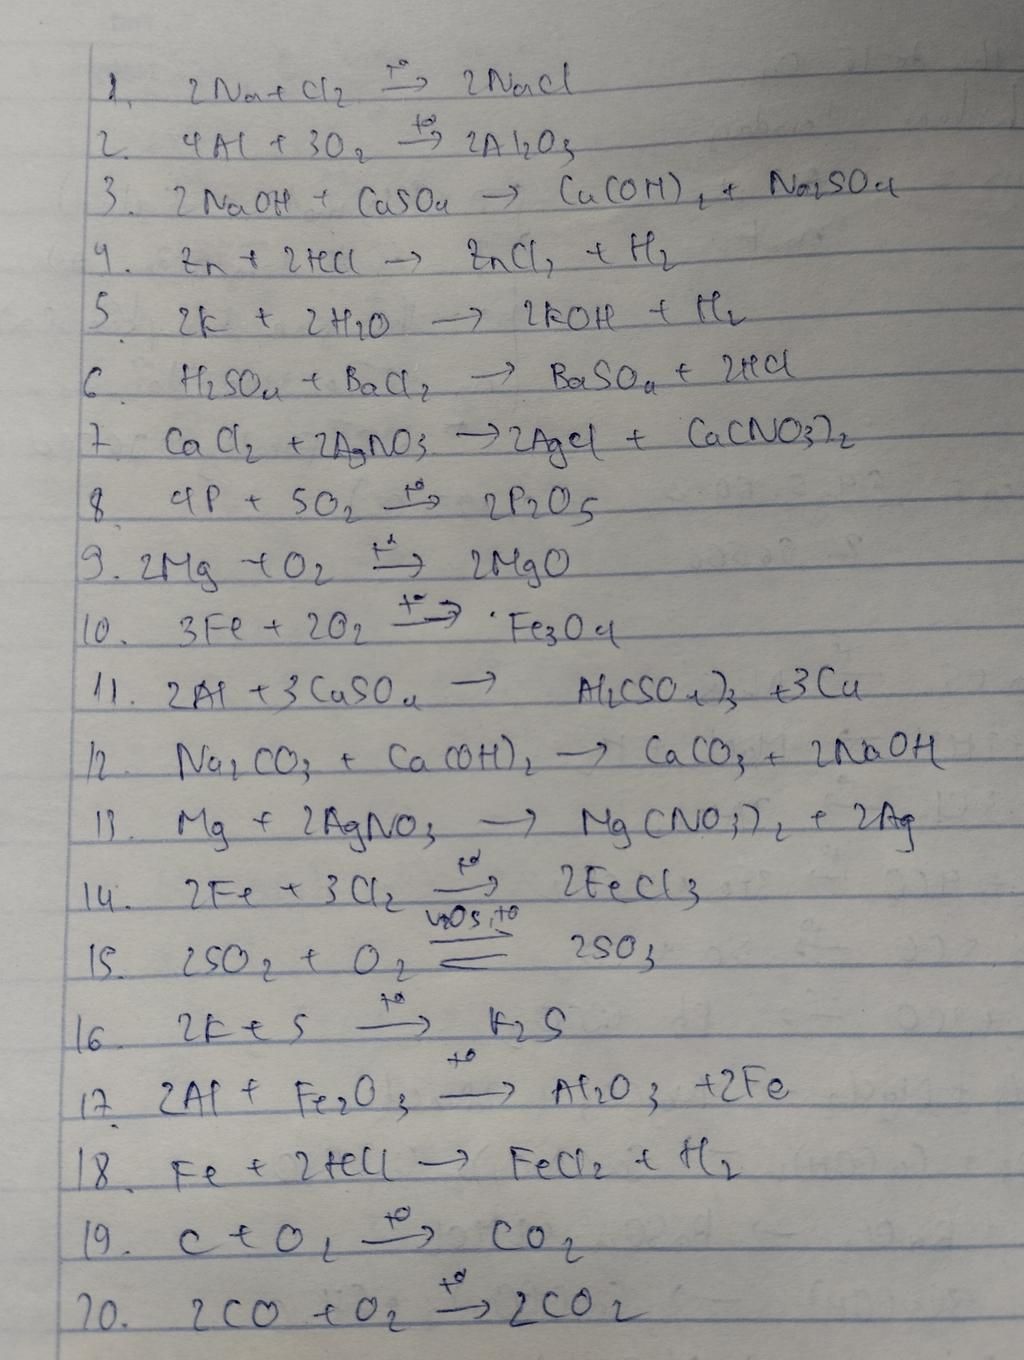 1. 2Na + Cl2 t°→ 2NaCl
2. 4Al + 3O2 t°→ 2Al2O3
3. 2NaOH + CuSO4 → Cu(OH)2 + Na2SO4
4. Zn + 2HCl → ZnCl2 + H2
5. 2K + 2H2O → 2KOH + H2
6. H2SO4 + BaCl2 → BaSO4 + 2HCl
7. CaCl2 + 2AgNO3 → 2AgCl + Ca(NO3)2
8. 4P + 5O2 t°→ 2P2O5
9. 2Mg + O2 t°→ 2MgO
10. 3Fe + 2O2 t°→ Fe3O4
11. 2Al + 3CuSO4 → Al2(SO4)3 + 3Cu
12. Na2CO3 + Ca(OH)2 → CaCO3 + 2NaOH
13. Mg + 2AgNO3 → Mg(NO3)2 + 2Ag
14. 2Fe + 3Cl2 t°→ 2FeCl3
15. 2SO2 + O2 V2O5, t°⇌ 2SO3
16. 2K + S t°→ K2S
17. 2Al + Fe2O3 t°→ Al2O3 + 2Fe
18. Fe + 2HCl → FeCl2 + H2
19. C + O2 t°→ CO2
20. 2CO + O2 t°→ 2CO2